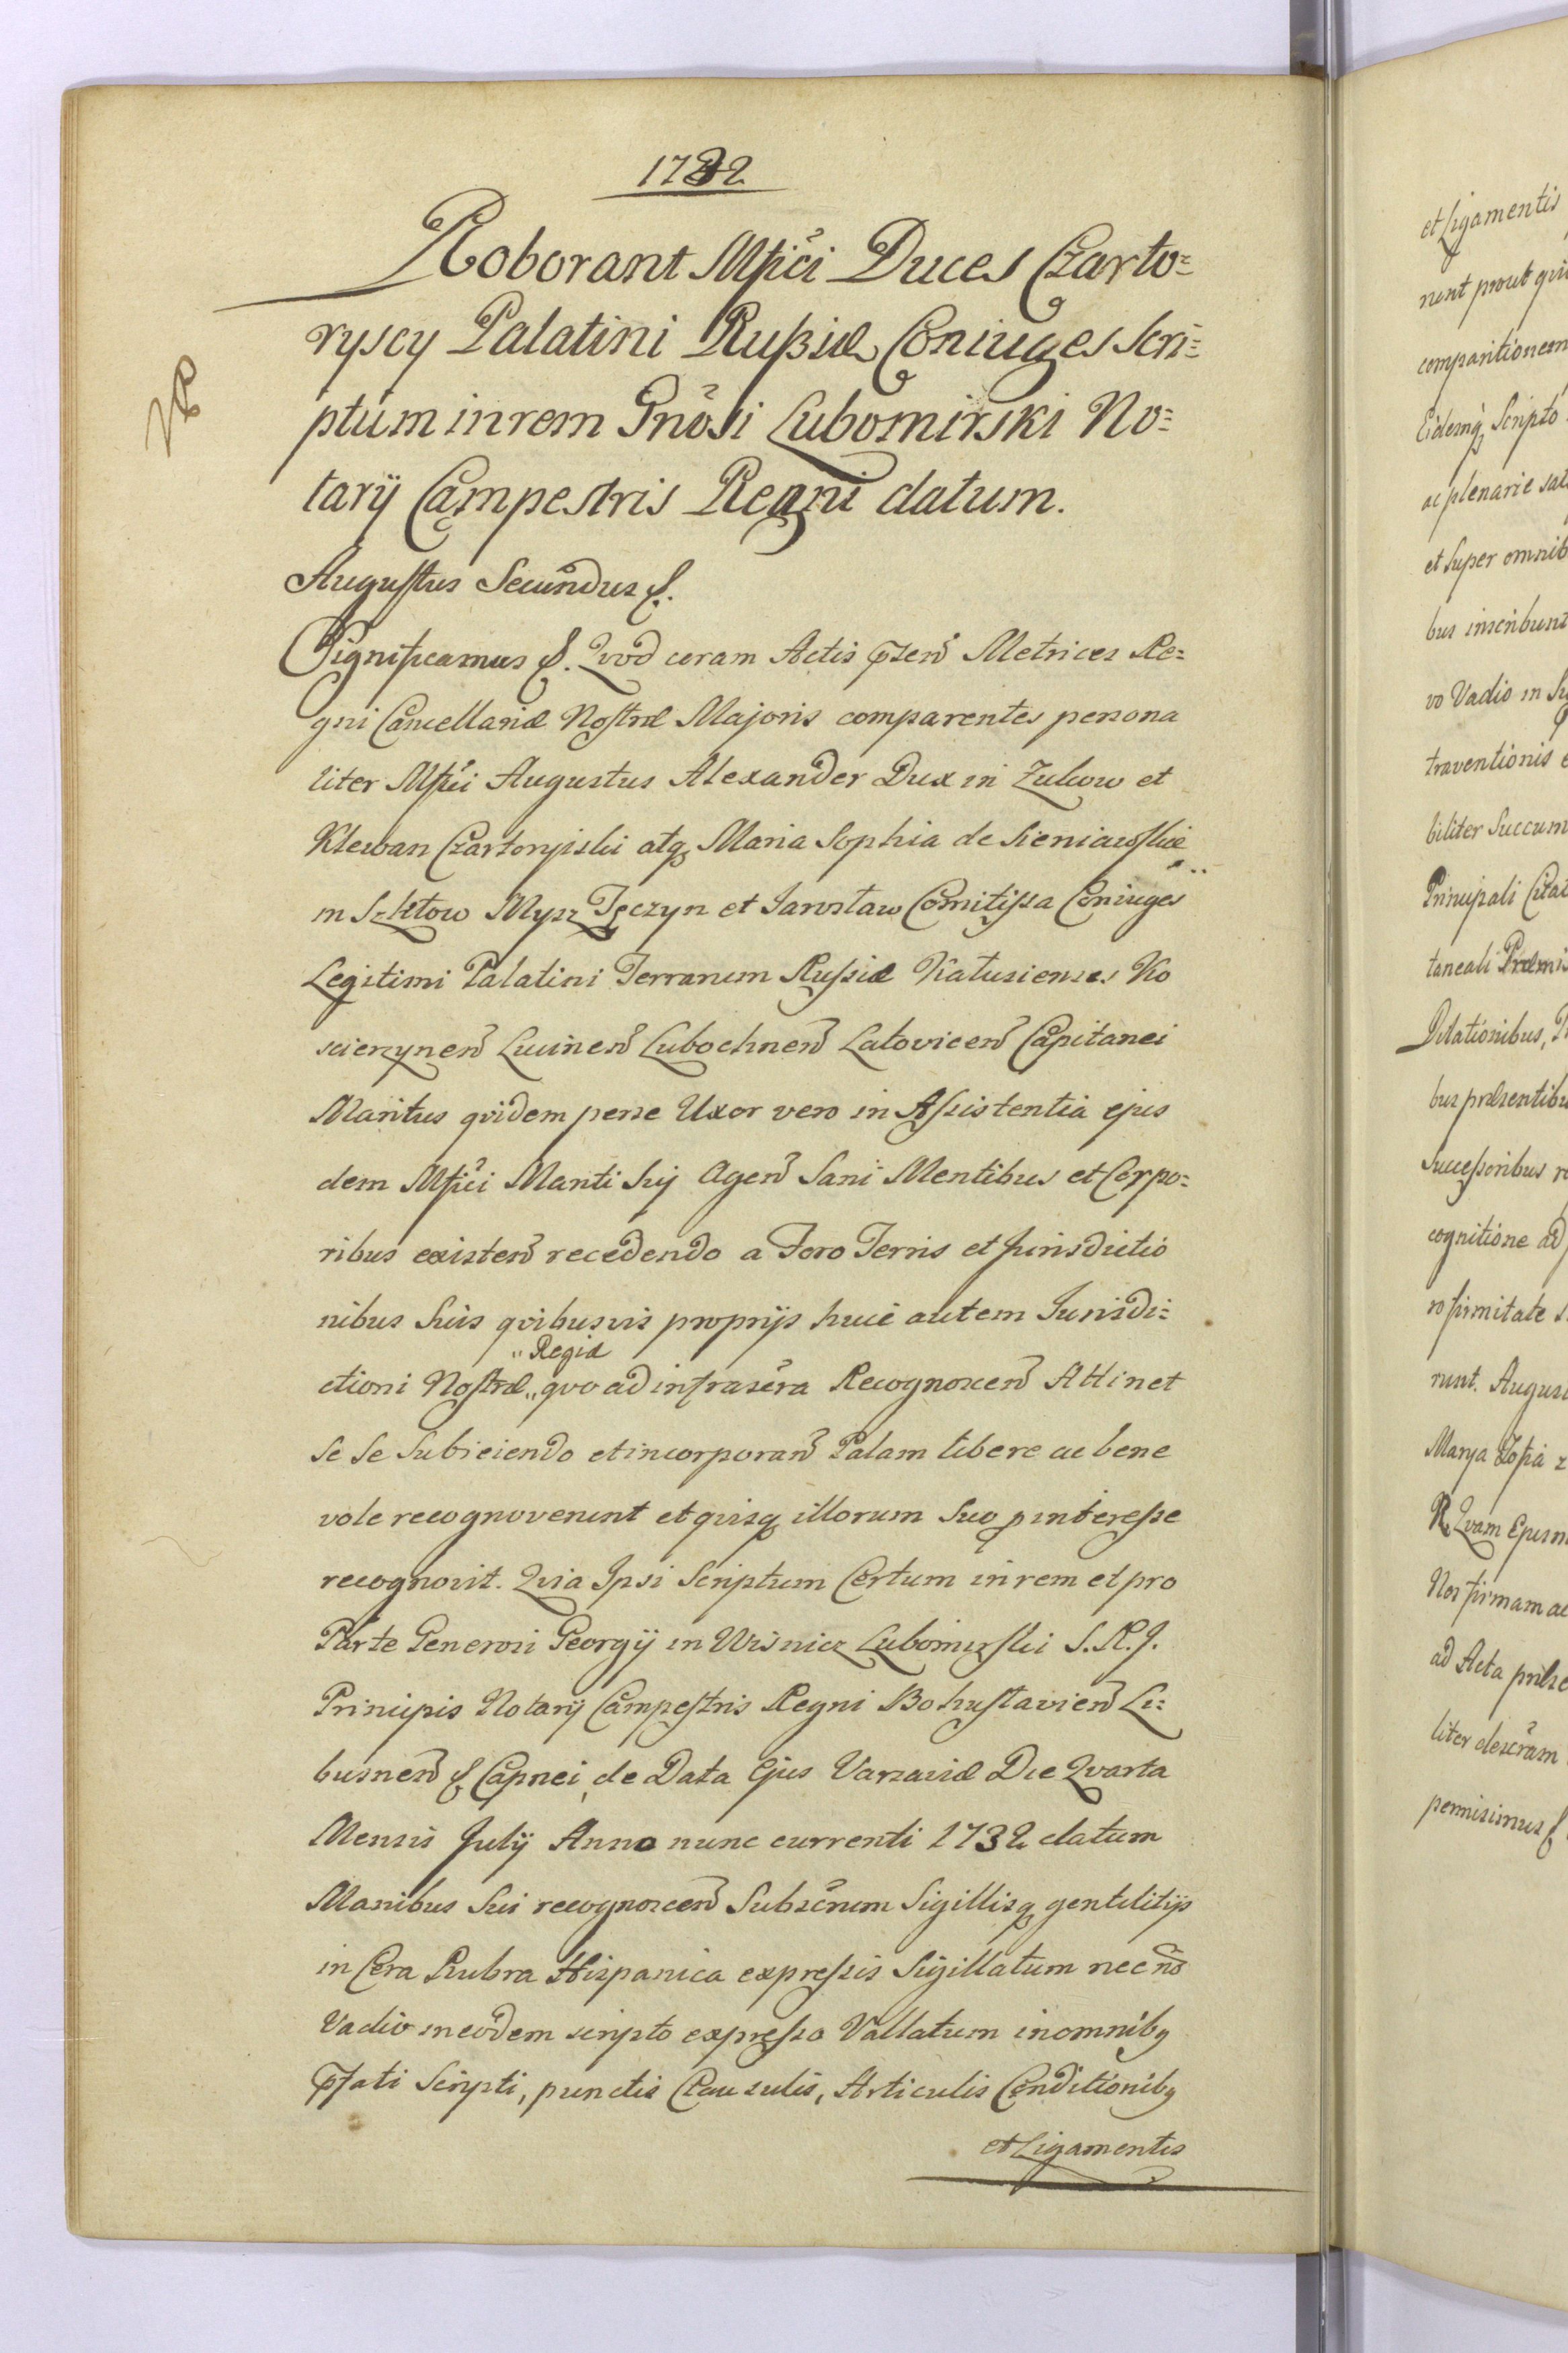 1732
Roborant Mfici Duces Czarto=
ryscy Palatini Rußiæ Coniuges Scri=
ptum in rem Gnosi Lubomirski No=
tarij Campestris Regni datum.
Augustus Secundus &.
Significamus &. Qvod coram Actis pzen Metrices Re=
gni Cancellariæ Nostræ Majoris comparentes persona
liter Mfici Augustus Alexander Dux in Zukow et
Klewan Czartoryiski atq Maria Sophia de Sieniawskie
in Szkłow Mysz Tęczyn et Jarosław Comitissa Coniuges
Legitimi Palatini Terrarum Russiæ Kałusienses Ko
scierzynen Lucinen Lubochnen Latovicen Capitanei
Maritus qvidem perse Uxor vero in Assistentia ejus
dem Mfici Mariti Sij Agen Sani Mentibus et Corpo=
ribus existen recedendo a Foro Terris et Jurisdictio
nibus Suis qvibusvis proprijs huic autem Jurisdi=
"Regiæ
ctioni Nostræ,, qvo ad infrascra Recognoscen Attinet
Se Se Subiciendo et incorporan Palam libere ac bene
vole recognoverunt et qvisq illorum Suo pinteresse
recognovit. Qvia Ipsi Scriptum Certum in rem et pro
Parte Generosi Georgij in Wisnicz Lubomirski S. R. J.
Principis Notarij Campestris Regni Bohuslavien Li=
busnen & Capnei, de Data Ejus Varsaviæ Die Qvarta
Mensis Julij Anno nunc currenti 1732 datum
Manibus Sui recognoscen Subscrum Sigillisq gentilitijs
in Cera Rubra Hispanica expressis Sigillatum nec no
Vadio in eodem scripto expresso Vallatum in omnibq
pfati Scripti, punctis Clausulis, Articulis Conditionibq
et Ligamentis
et Ligamentis
comparitionem
Eidemq Scripto
ac plenarie
et Super
bus inscribunt
vo Vadio in
traventionis
biliter
Principali
taneali
Dilationibus,
bus
Successoribus
cognitione ad
firmitate
runt.
Marya Zofia z
Nos firmam
ad Acta
liter descram
permisimus &